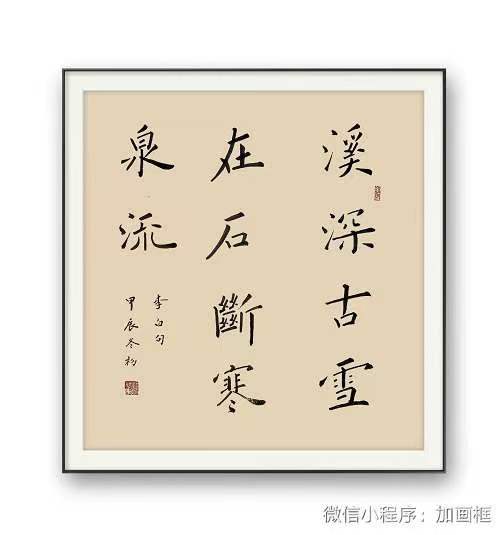 溪深古雪
在石斷寒
泉流
李白句
甲辰冬
微信小程序：加画框